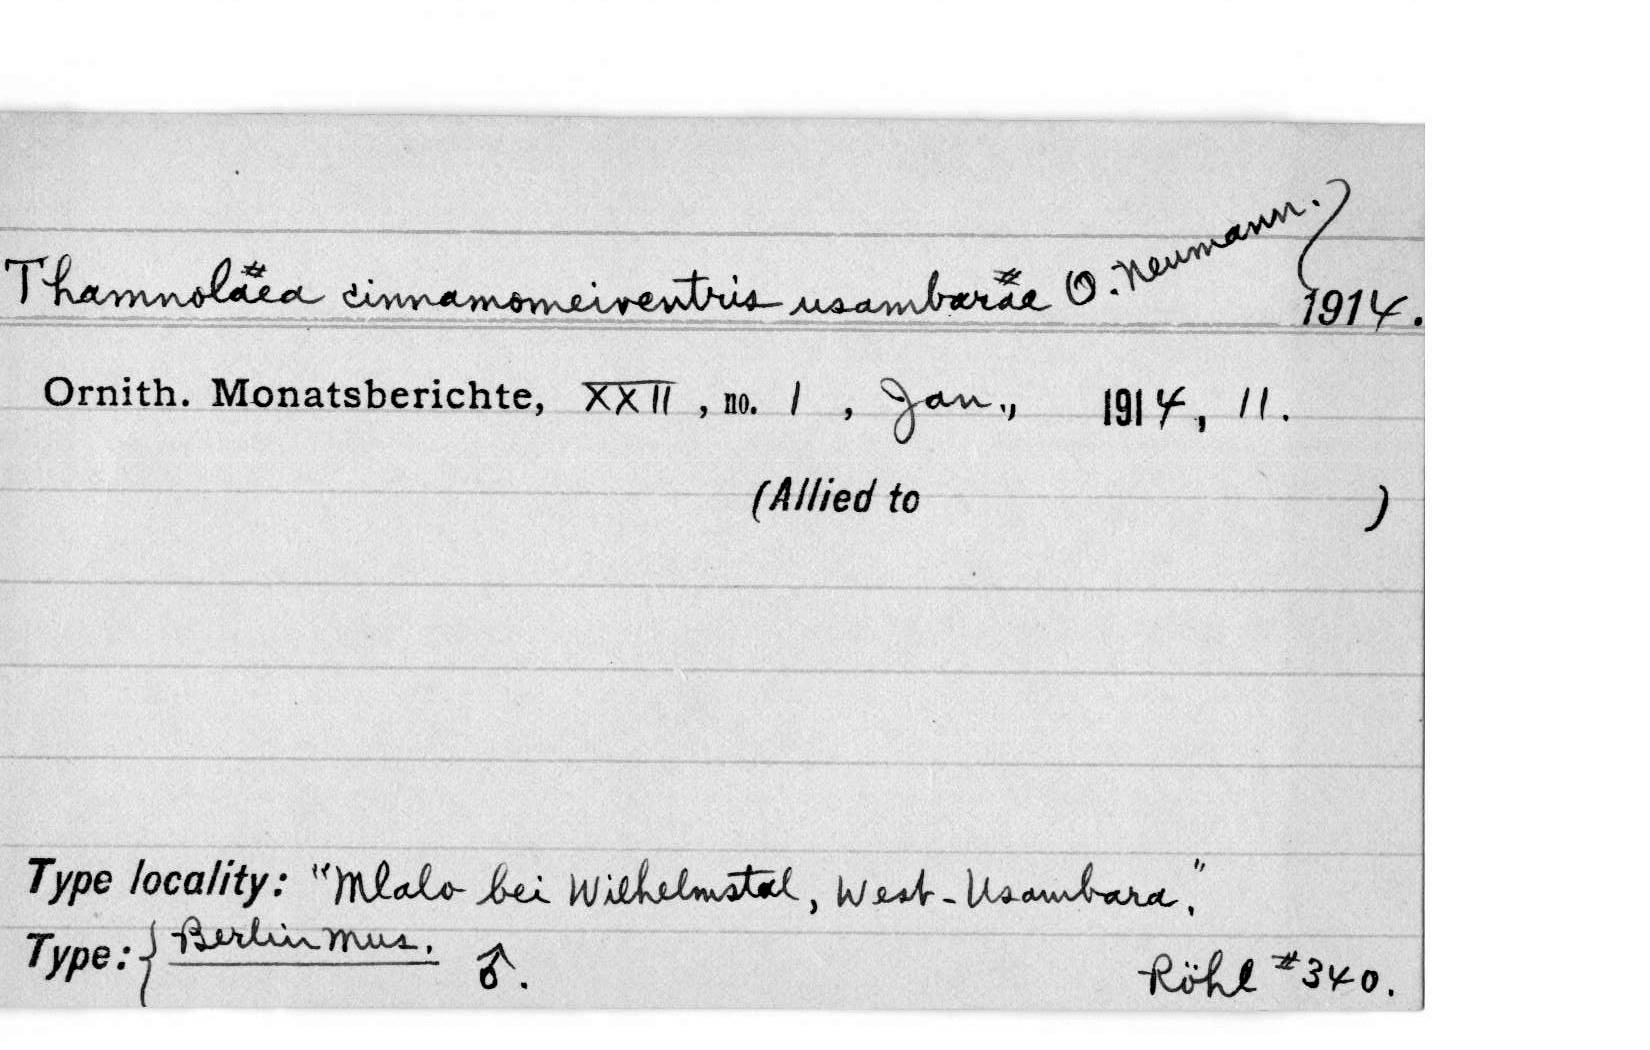 Thamnoläea cinnamomeiventris usambaräe O. Neumann. 1914.
Ornith. Monatsberichte, XXII, no. 1, Jan., 1914, 11.
(Allied to )
Type locality: "Mlalo bei Wilhelmstal, West-Usambara."
Type: { Berlin Mus. ♂. Röhl #340.